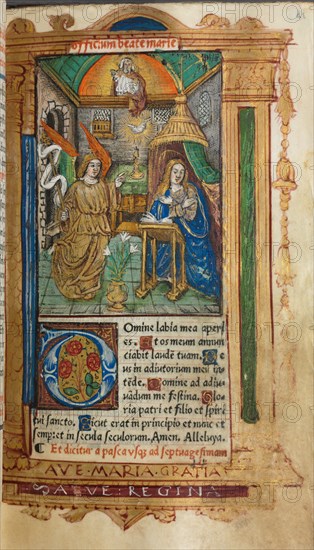 officium beate marie
Domine labia mea aperi
es. Et os meum annun
ciabit laudē tuam. Deus
us in adiutorium meu in
tēde. Domine ad adiu
vādum me festina. Glo
ria patri et filio et spiri
tui sancto. Sicut erat in principio et nunc et
semp: et in secula seculorum. Amen. Alleluya.
Et dicitur a pasca vsq; ad septuagesimam
AVE·MARIA·GRATIA
SALVE·REGINA